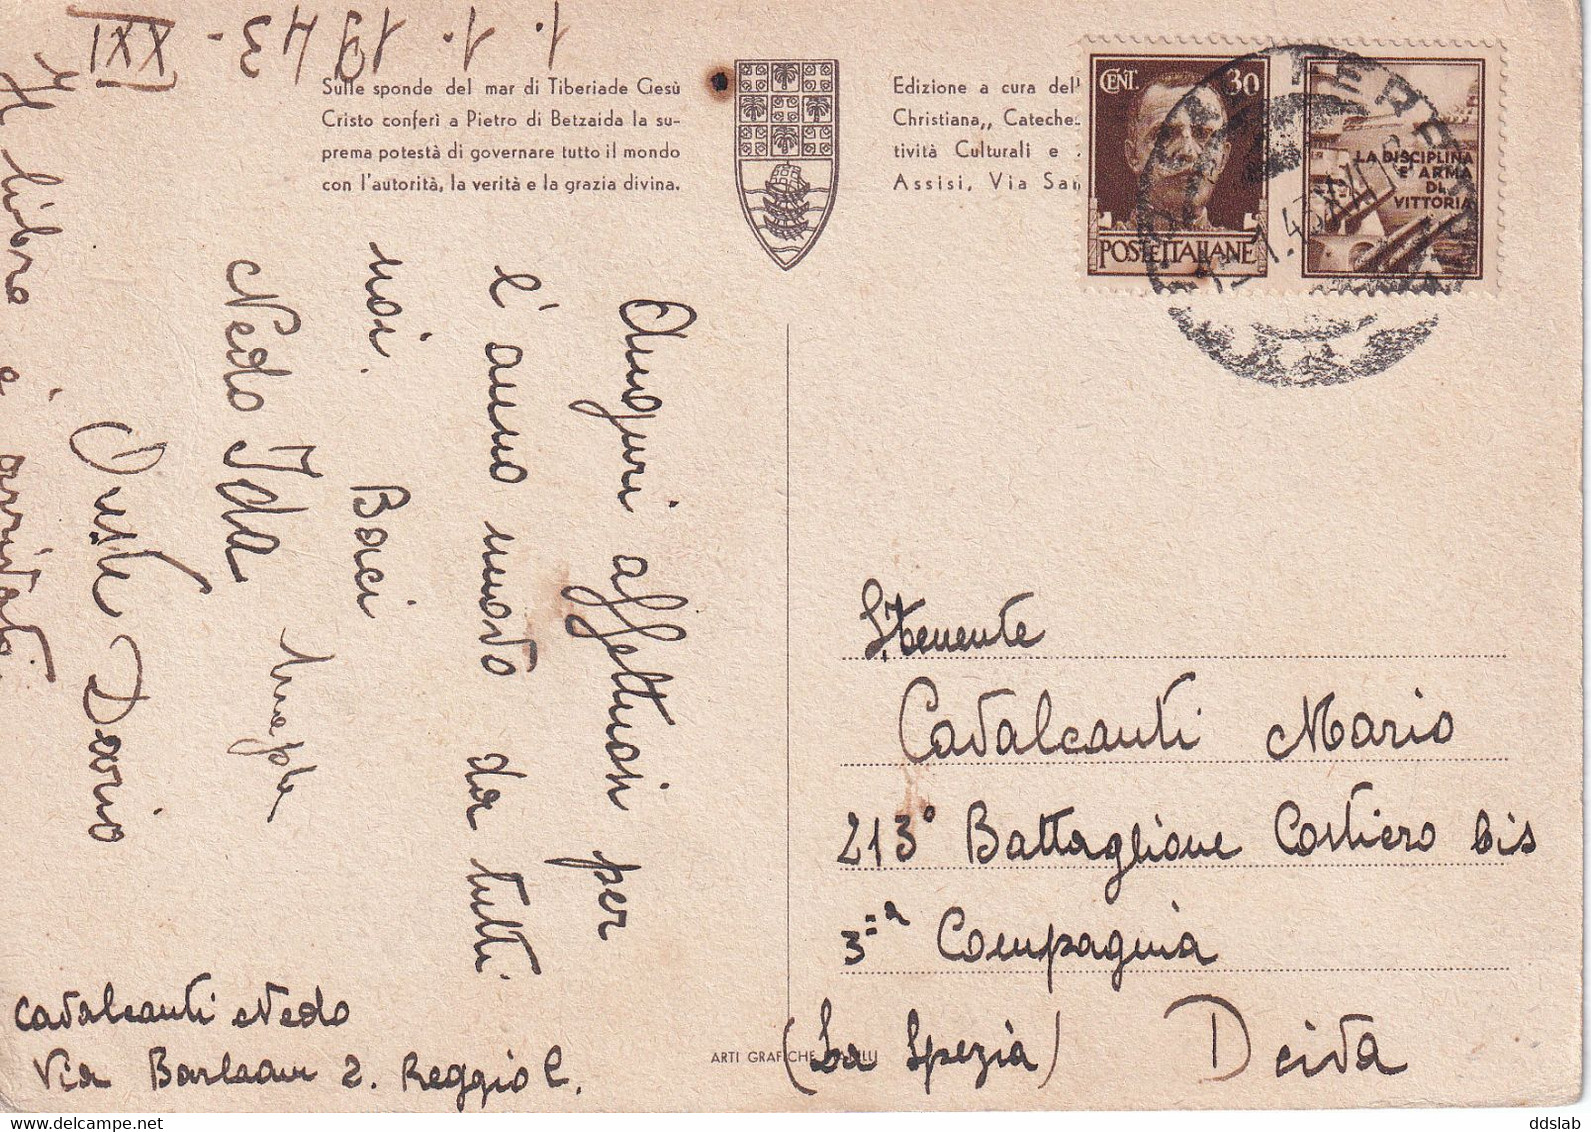 1. 1. 1943 - XXI
Sulle sponde del mar di Tiberiade Gesù
Cristo conferì a Pietro di Betzaida la su-
prema potestà di governare tutto il mondo
con l'autorità, la verità e la grazia divina.
Edizione a cura dell'
Christiana,, Cateche-
tività Culturali e
Assisi, Via San
CENT. 30
POSTE ITALIANE
LA DISCIPLINA
E' ARMA
DI
VITTORIA
Auguri affettuosi per
l'anno nuovo da tutti
noi. Baci
Nedo Ida
Dario
Il libro è arrivato
Cavalcanti Nedo
Via Barlaam 2. Reggio C.
S.Tenente
Cavalcanti Mario
213° Battaglione Costiero bis
3ª Compagnia
(La Spezia) Deiva
ARTI GRAFICHE
ddslab
www.delcampe.net